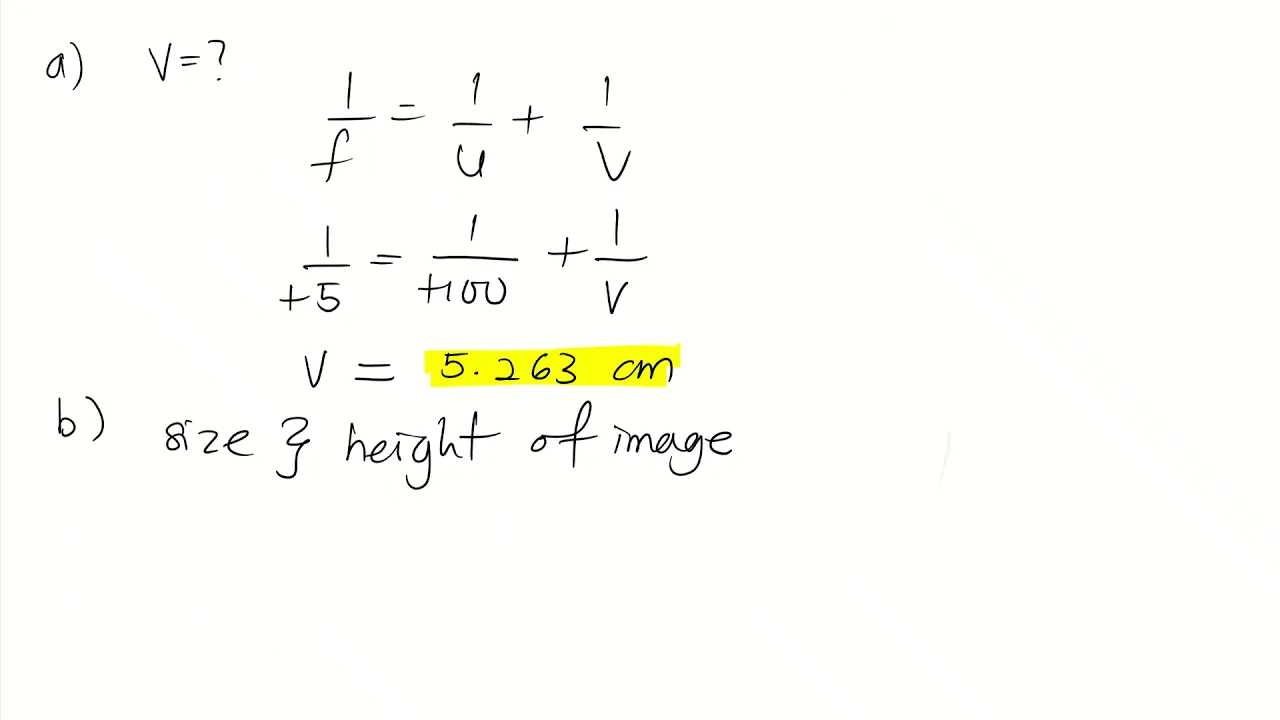 a) V = ?
1/f = 1/u + 1/V
1/+5 = 1/+100 + 1/V
V = 5.263 cm
b) size } height of image